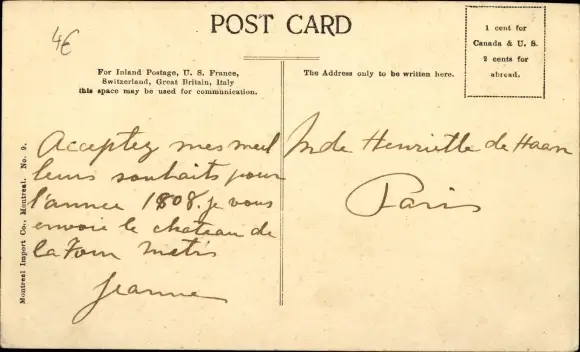 4€
POST CARD
1 cent for
Canada & U. S.
2 cents for
abroad.
For Inland Postage, U. S. France,
Switzerland, Great Britain, Italy
this space may be used for communication.
The Address only to be written here.
Montreal Import Co., Montreal. No. 9.
Acceptez mes meil
leurs souhaits pour
l'année 1808. je vous
envoie le chateau de
la
Jeanne
Mde Henriette de Haan
Paris